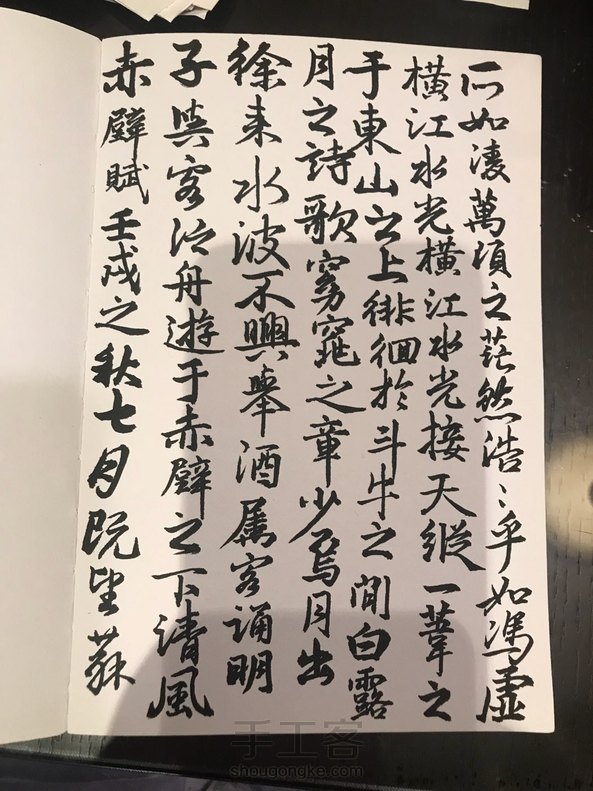 赤壁賦壬戌之秋七月既望蘇
子與客泛舟遊于赤壁之下清風
徐来水波不興舉酒属客誦明
月之詩歌窈窕之章少焉月出
于東山之上徘徊於斗牛之間白露
橫江水光橫江水光接天縱一葦之
所如凌萬頃之茫然浩〻乎如馮虛
手工客
shougongke.com